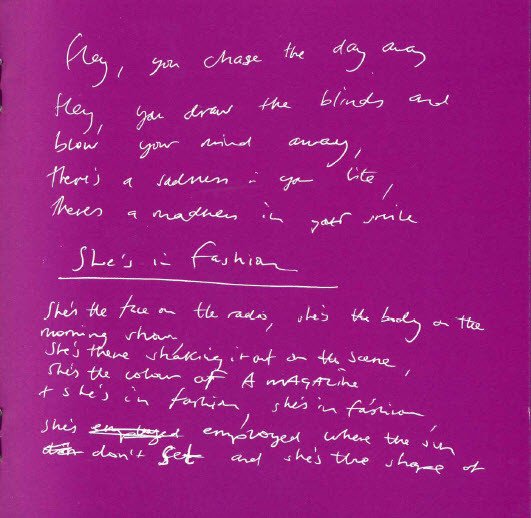 Hey, you chase the day away
Hey, you draw the blinds and
blow your mind away,
there's a sadness in you life,
theres a madness in your smile
She's in Fashion
She's the face on the radio, she's the body on the
morning show
She's there shaking it out on the scene,
She's the colour of A MAGAZINE
+ she's in fashion, she's in fashion
she's employed employed where the sun
don't set and she's the shape of